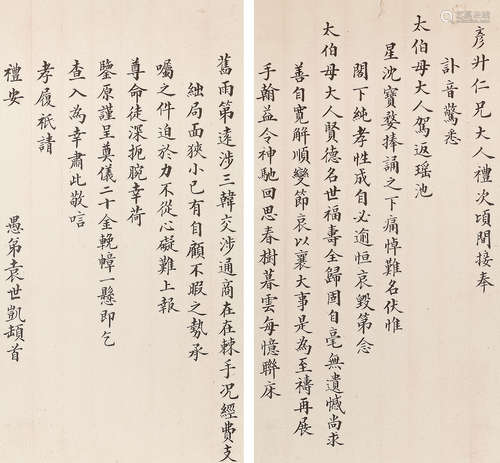 彥升仁兄大人禮次頃間接奉
訃音驚悉
太伯母大人駕返瑤池
星沈寶婺捧誦之下痛悼難名伏惟
閣下純孝性成自必逾恒哀毀第念
太伯母大人賢德名世福壽全歸固自毫無遺憾尚求
善自寬解順變節哀以襄大事是為至禱再展
手翰益令神馳回思春樹暮雲每憶聯床
舊雨第遠涉三韓交涉通商在在棘手況經費支
絀局面狹小已有自顧不暇之勢承
囑之件迫於力不從心礙難上報
尊命徒深扼腕幸荷
鑒原謹呈奠儀二十金輓幛一懸即乞
查入為幸肅此敬唁
孝履祗請
禮安 愚弟袁世凱頓首